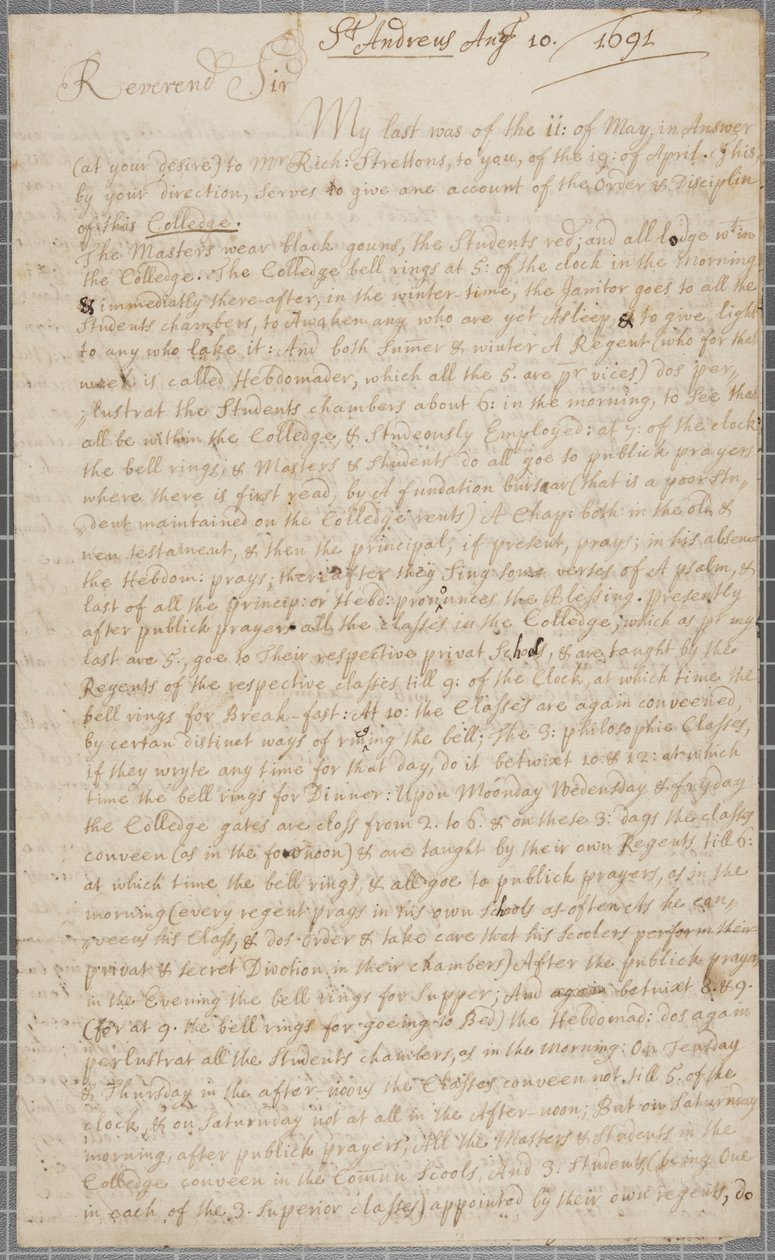 St Andrews Augt 10. 1691
Reverend Sir
My last was of the 11: of May, in Answer
(at your desire) to Mr Rich: Strettons, to you, of the 19: of April. This,
by your direction, serves to give ane account of the Order & Disciplin
of this Colledge.
The Masters wear black gouns, the Students red; and all lodge wtin
the Colledge. The Colledge bell rings at 5: of the clock in the Morning
& immediatly there-after, in the winter-time, the Janitor goes to all the
Students chambers, to Awaken any who are yet Asleep, & to give light
to any who lake it: And both Summer & winter A Regent (who for that
week is called Hebdomader, which all the 5. are pr vices) dos per,,
,,lustrat the Students chambers about 6: in the morning, to see that
all be within the Colledge, & Studeously Employed: at 7: of the clock
the bell rings, & Masters & Students do all goe to publick prayers
where there is first read, by A fundation bursar (that is a poor Stu,,
,,dent maintained on the Colledge rents) A Chap: both in the old &
new testament, & then the principal, if present, prays; in his absence
the Hebdom: prays; thereafter they Sing some verses of A psalm, &
last of all the princip: or Hebd: pronounces the Blessing. Presently
after publick prayers all the classes in the Colledge, which as pt my
last are 5., goe to Their respective privat Schools, & are taught by the
Regents of the respective classes till 9: of the Clock, at which time the
bell rings for Break-fast: At 10: the Classes are again conveened,
by certan distinct ways of ringing the bell; The 3: philosophie Classes,
if they wryte any time for that day, do it betwixt 10 & 12: at which
time the bell rings for Dinner: Upon Moonday Wedensday & fryday
the Colledge gates are closs from 2. to 6. & on these 3: days the classes
conveen (as in the forenoon) & are taught by their own Regents till 6:
at which time the bell rings, & all goe to publick prayers, as in the
morning (every regent prays in his own Schools as often As he con,,
,,veens his Class, & dos order & take care that his Scoolers perform their
privat & secret Divotion in their chambers) After the publick prayers
in the Evening the bell rings for Supper; And again betwixt 8. & 9.
(for at 9. the bell rings for goeing to Bed) the Hebdomad: dos again
perlustrat all the Students chambers, as in the morning: On Teusday
& Thursday in the after-noons the Classes conveen not till 5. of the
clock, & on Saturnday not at all in the After-noon; But on Saturnday
morning, after publick prayers, All the Masters & Students in the
Colledge conveen in the Comun Scools, And 3. Students (being One
in each of the 3. Superior classes) appointed by their own regents, do